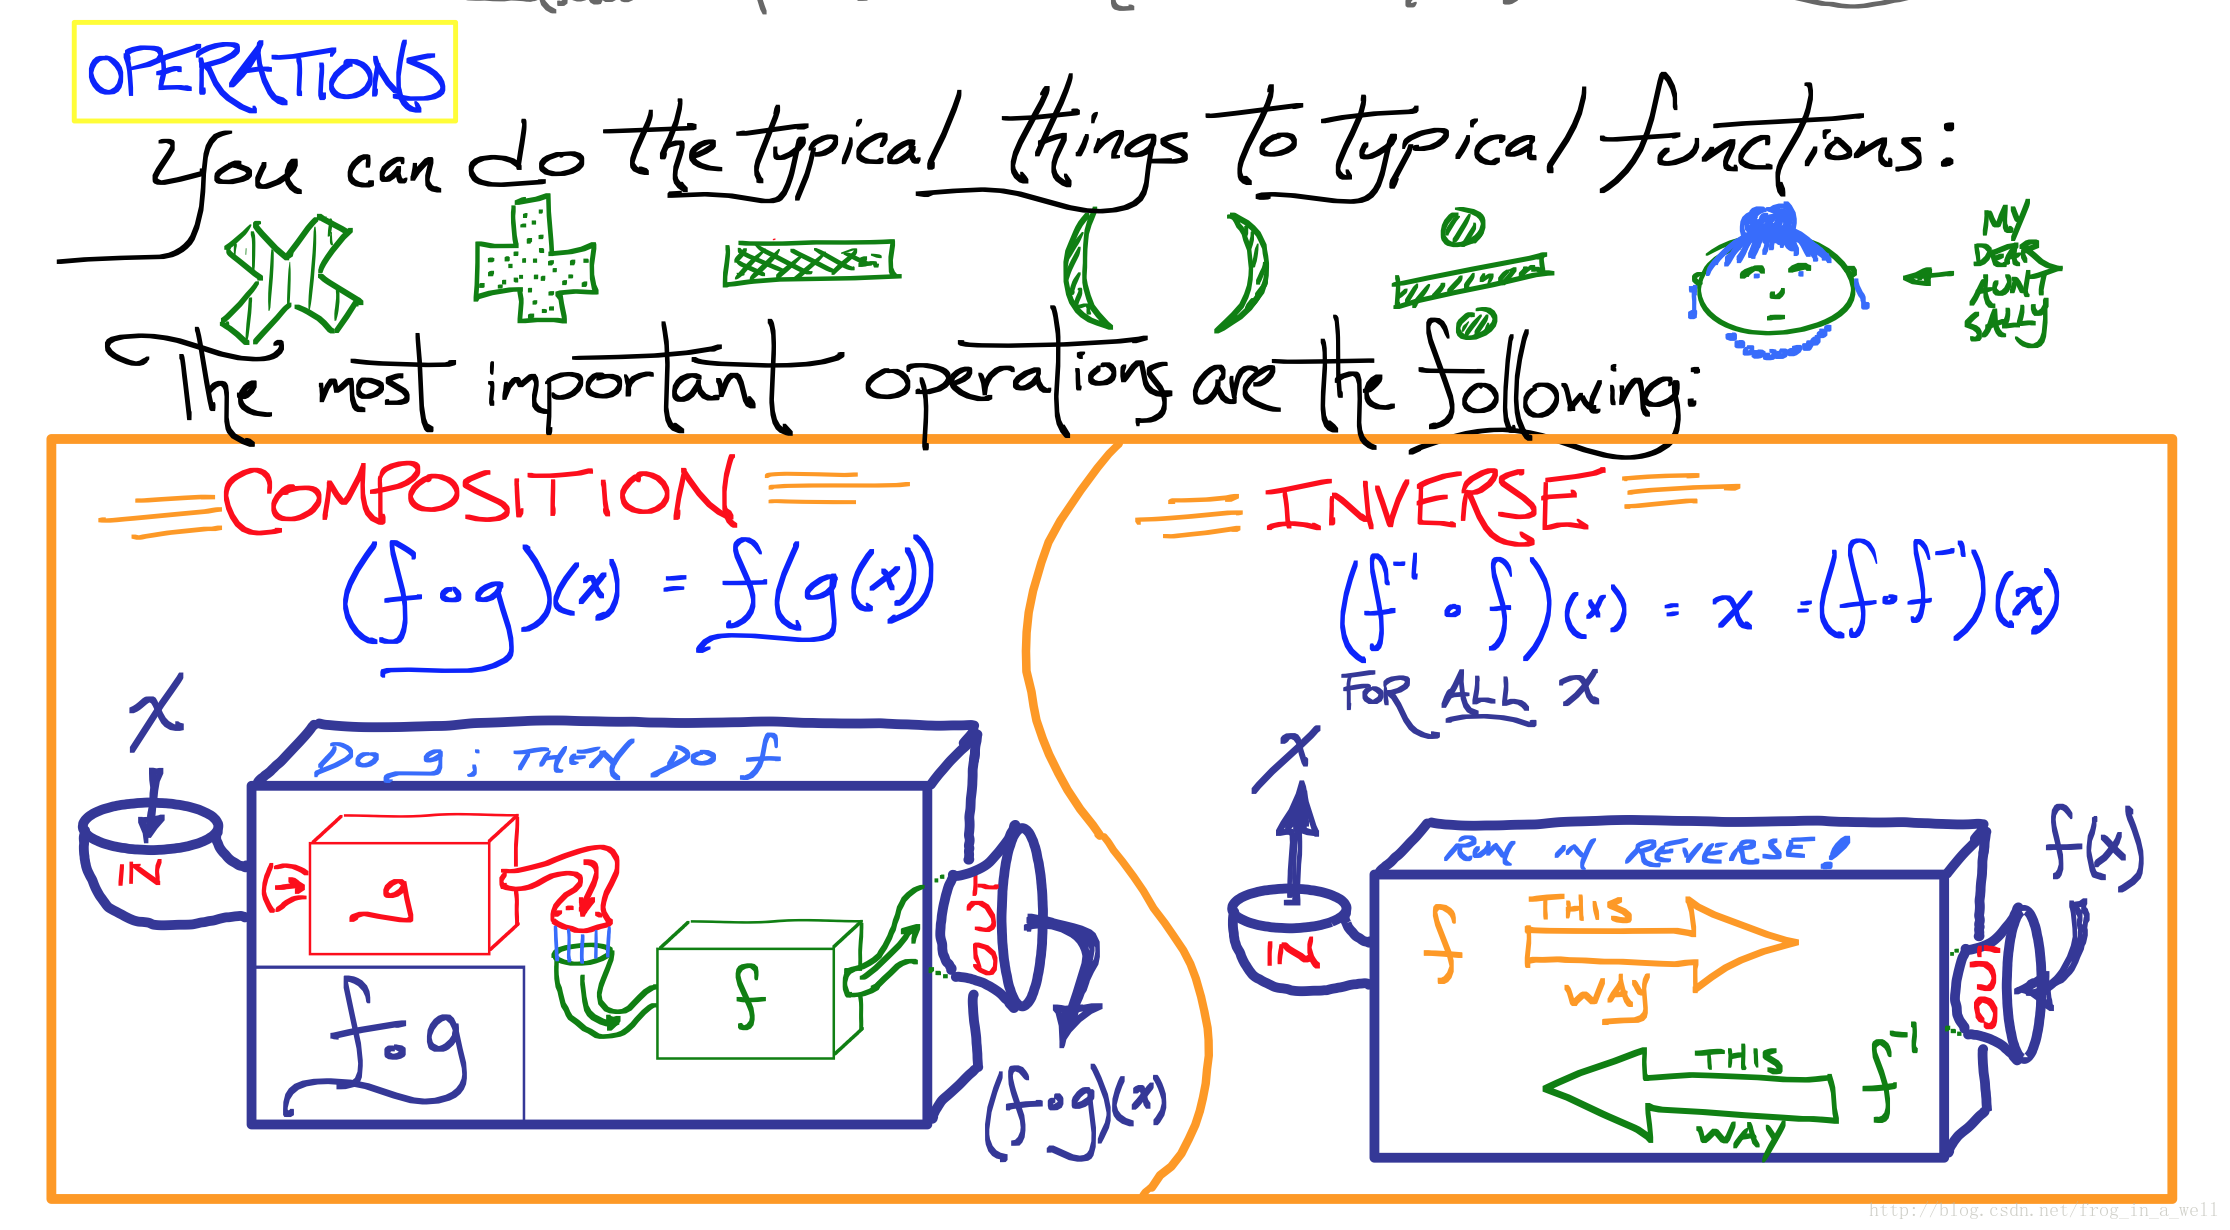 OPERATIONS
You can do the typical things to typical functions:
MY
DEAR
AUNT
SALLY
The most important operations are the following:
COMPOSITION
(f∘g)(x) = f(g(x))
x
IN
DO g; THEN DO f
g
f
f∘g
OUT
(f∘g)(x)
INVERSE
(f⁻¹∘f)(x) = x = (f∘f⁻¹)(x)
FOR ALL x
x
IN
RUN IN REVERSE!
f(x)
f
THIS
WAY
THIS
WAY
f⁻¹
OUT
http://blog.csdn.net/frog_in_a_well